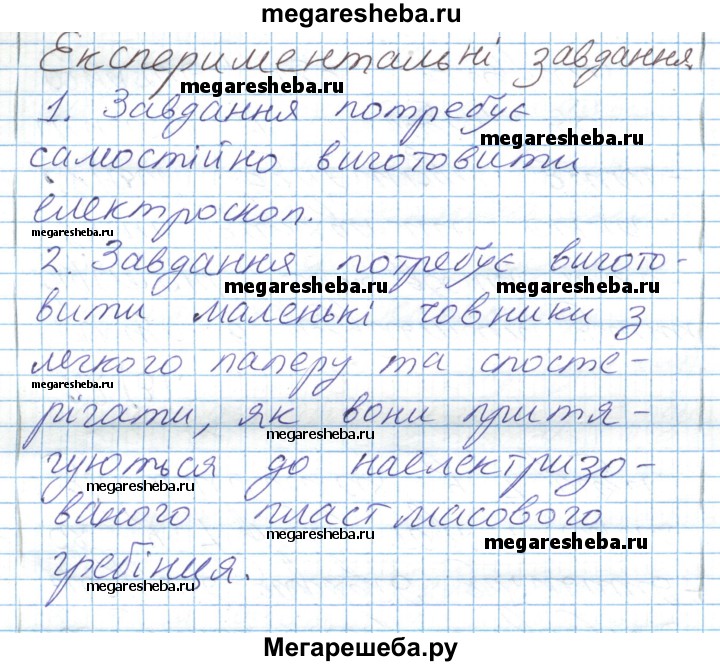 megaresheba.ru
Експериментальні завдання
megaresheba.ru
1. Завдання потребує
megaresheba.ru
самостійно виготовити
електроскоп.
megaresheba.ru
2. Завдання потребує вигото-
megaresheba.ru megaresheba.ru
вити маленькі човники з
легкого паперу та спосте-
megaresheba.ru megaresheba.ru
рігати, як вони притя-
megaresheba.ru
гуються до наелектризо-
megaresheba.ru
ваного пластмасового
megaresheba.ru megaresheba.ru
гребінця.
Мегарешеба.ру